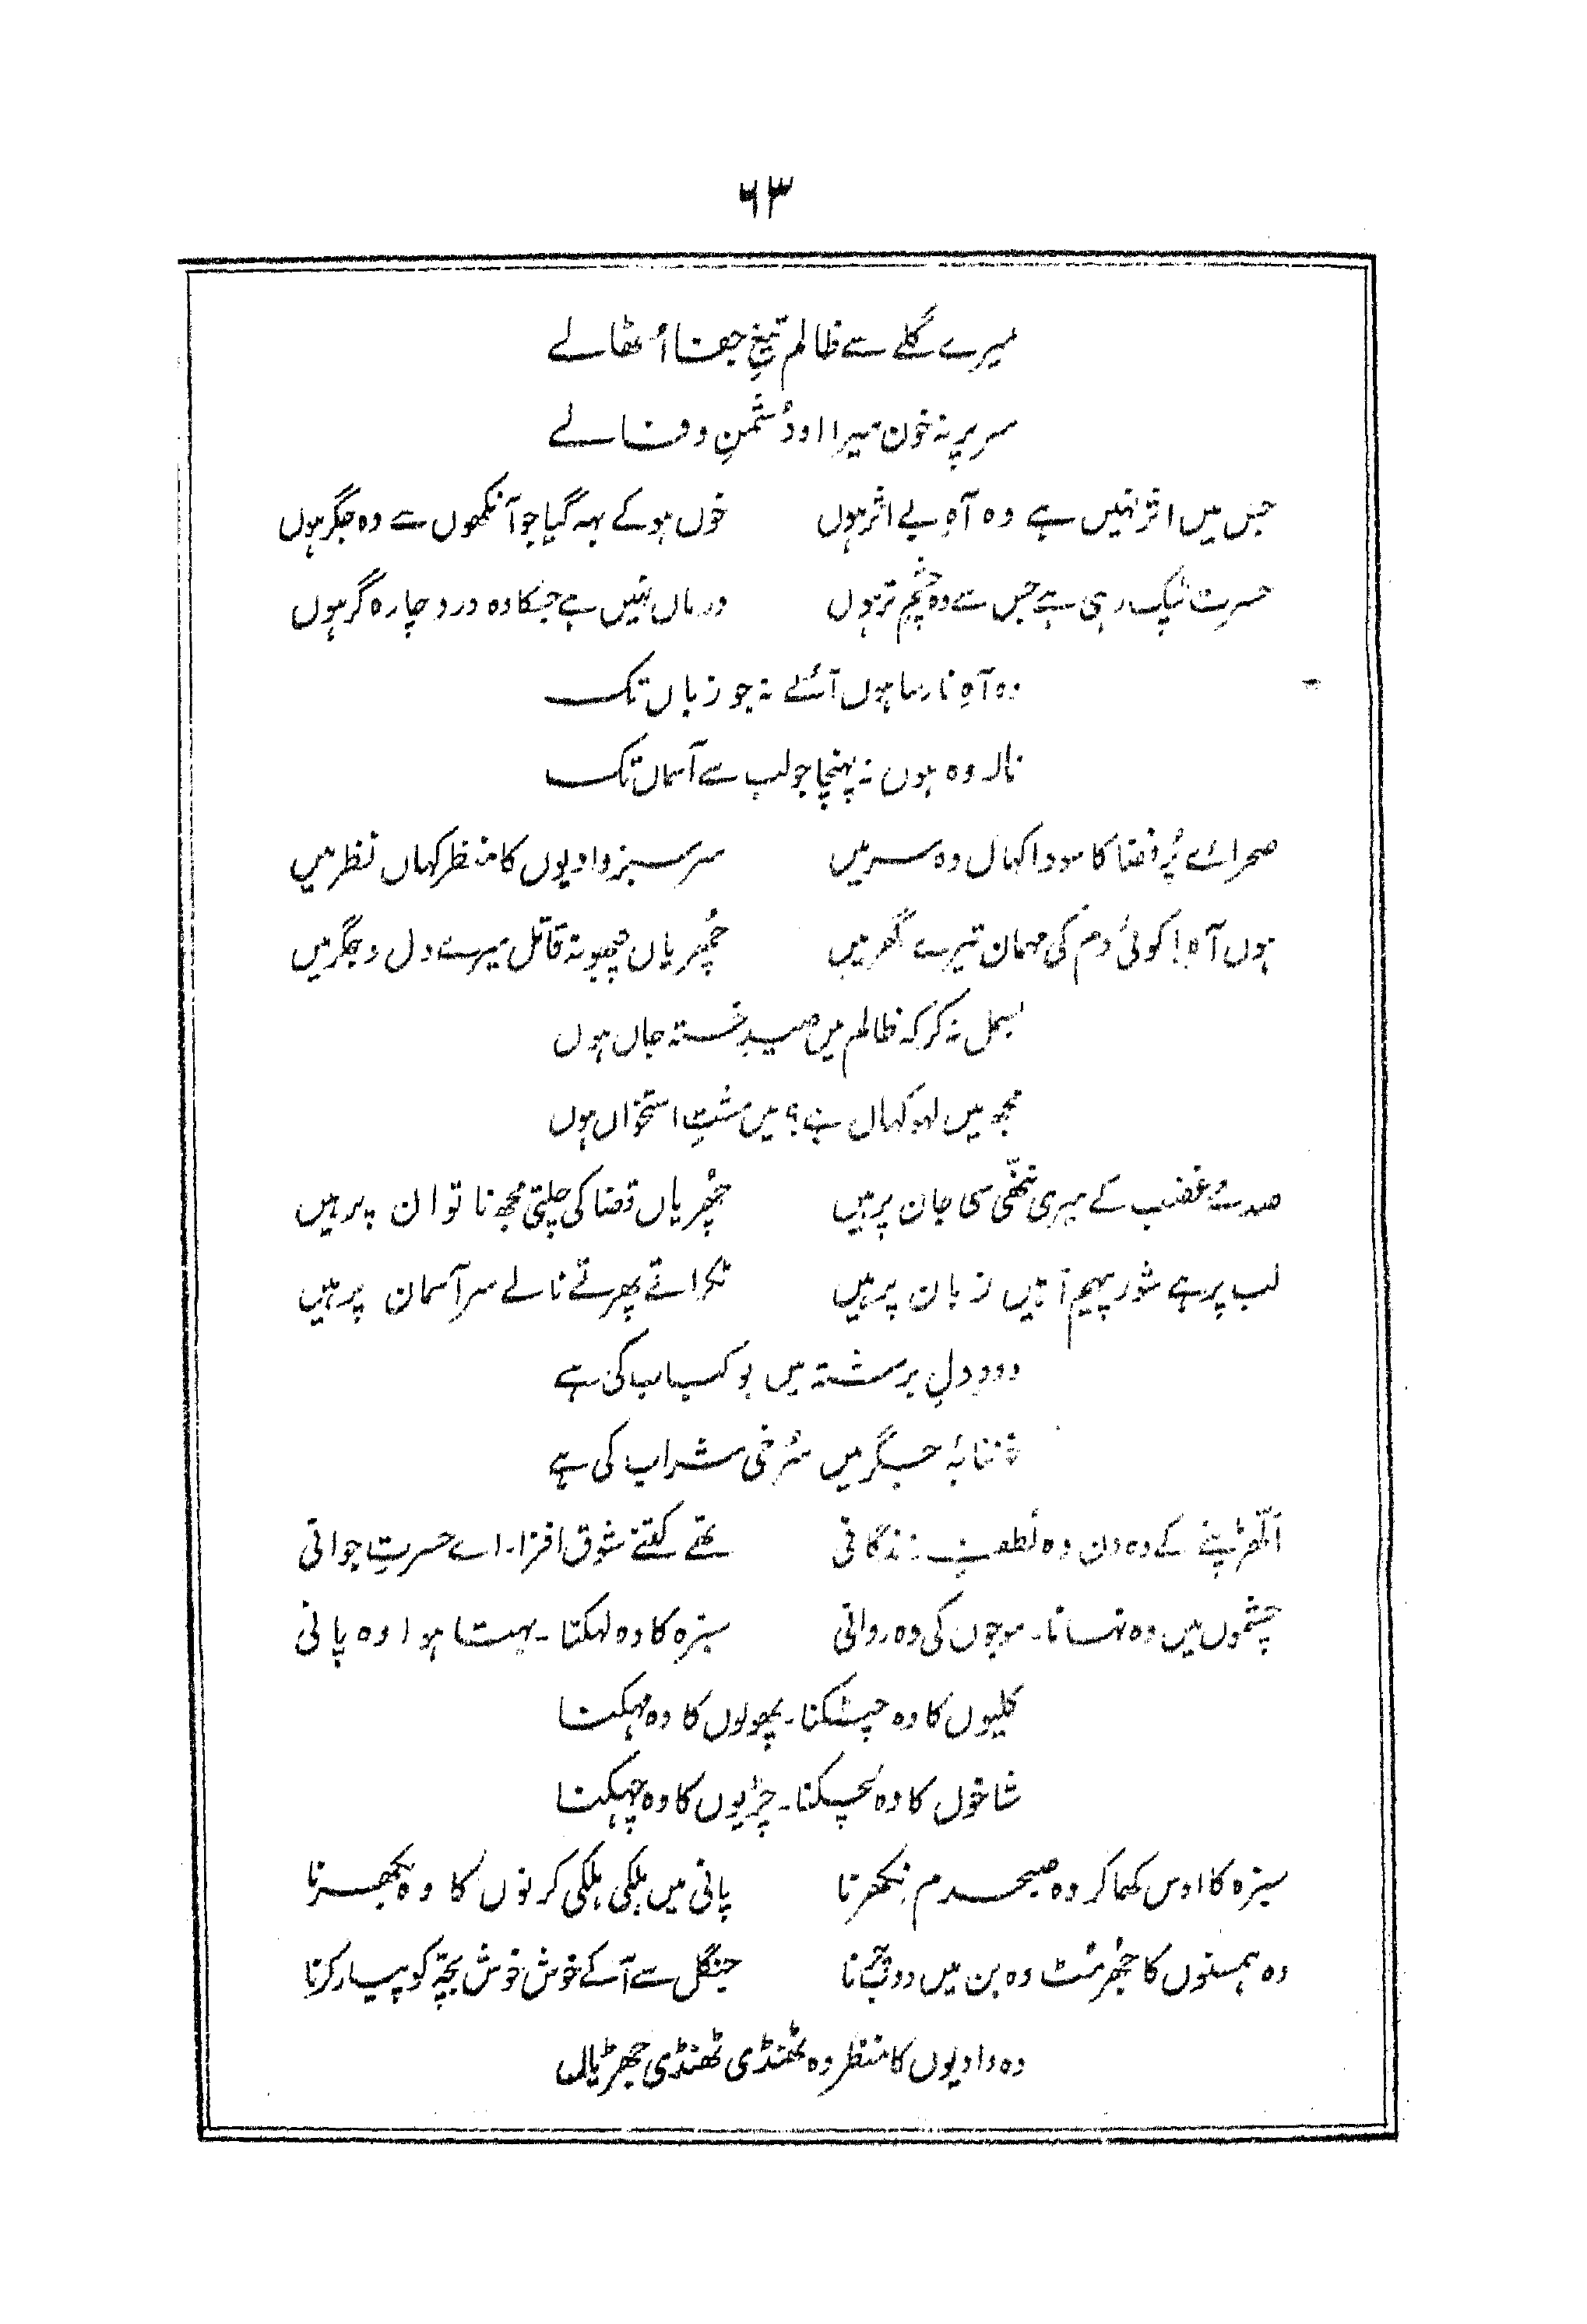 ۶۳
میرے گلے سے ظالم تیغِ جفا اُٹھا لے
سر پر نہ خون میرا او دُشمنِ وفا لے
جس میں اثر نہیں ہے وہ آہِ بے اثر ہوں خوں ہو کے بہہ گیا جو آنکھوں سے وہ جگر ہوں
حسرت ٹپک رہی ہے جس سے وہ چشمِ تر ہوں درماں نہیں ہے جسکا وہ درد چارہ گر ہوں
وہ آہِ نارسا ہوں آئے نہ جو زباں تک
نالہ وہ ہوں نہ پہنچا جو لب سے آسماں تک
صحرائے پُر فضا کا سودا کہاں وہ سر میں سرسبز وادیوں کا منظر کہاں نظر میں
ہوں آہ! کوئی دم کی مہمان تیرے گھر میں چُھریاں چبھو نہ قاتل میرے دل و جگر میں
بسمل نہ کر کہ ظالم میں صیدِ خستہ جاں ہوں
مجھ میں لہو کہاں ہے؟ میں مشتِ استخواں ہوں
صدمے غضب کے میری ننھّی سی جان پر ہیں چُھریاں قضا کی چلتی مجھ ناتوان پر ہیں
لب پر ہے شور پیہم آہیں زبان پر ہیں ٹکراتے پھرتے نالے سر آسمان پر ہیں
دودِ دلِ برشتہ میں بو کباب کی ہے
خننابۂ جگر میں سُرخی شراب کی ہے
الھّڑپنے کے وہ دن وہ لُطفِ زندگانی تھے کتنے شوق افزا۔ اے حسرتِ جوانی
چشموں میں وہ نہانا۔ موجوں کی وہ روانی سبزہ کا وہ لہکنا۔ بہتا ہوا وہ پانی
کلیوں کا وہ چٹکنا۔ پھولوں کا وہ مہکنا
شاخوں کا وہ لچکنا۔ چڑیوں کا وہ چہکنا
سبزہ کا اوس کھا کر وہ صبحدم نکھرنا پانی میں ہلکی ہلکی کرنوں کا وہ بکھرنا
وہ ہمسنوں کا جُھرمٹ وہ بن میں جنگل سے آ کے خوش خوش بچّہ کو پیار کرنا
وہ وادیوں کا منظر وہ ٹھنڈی ٹھنڈی جھڑیاں